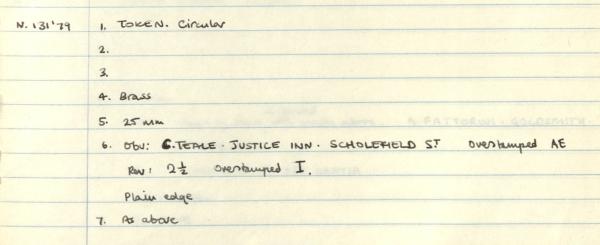 N.131'79 1. TOKEN. Circular
2.
3.
4. Brass
5. 25 mm
6. Obv: C.TEALE · JUSTICE INN · SCHOLEFIELD ST Overstamped AE
Rev: 2½ Overstamped I.
Plain edge
7. As above